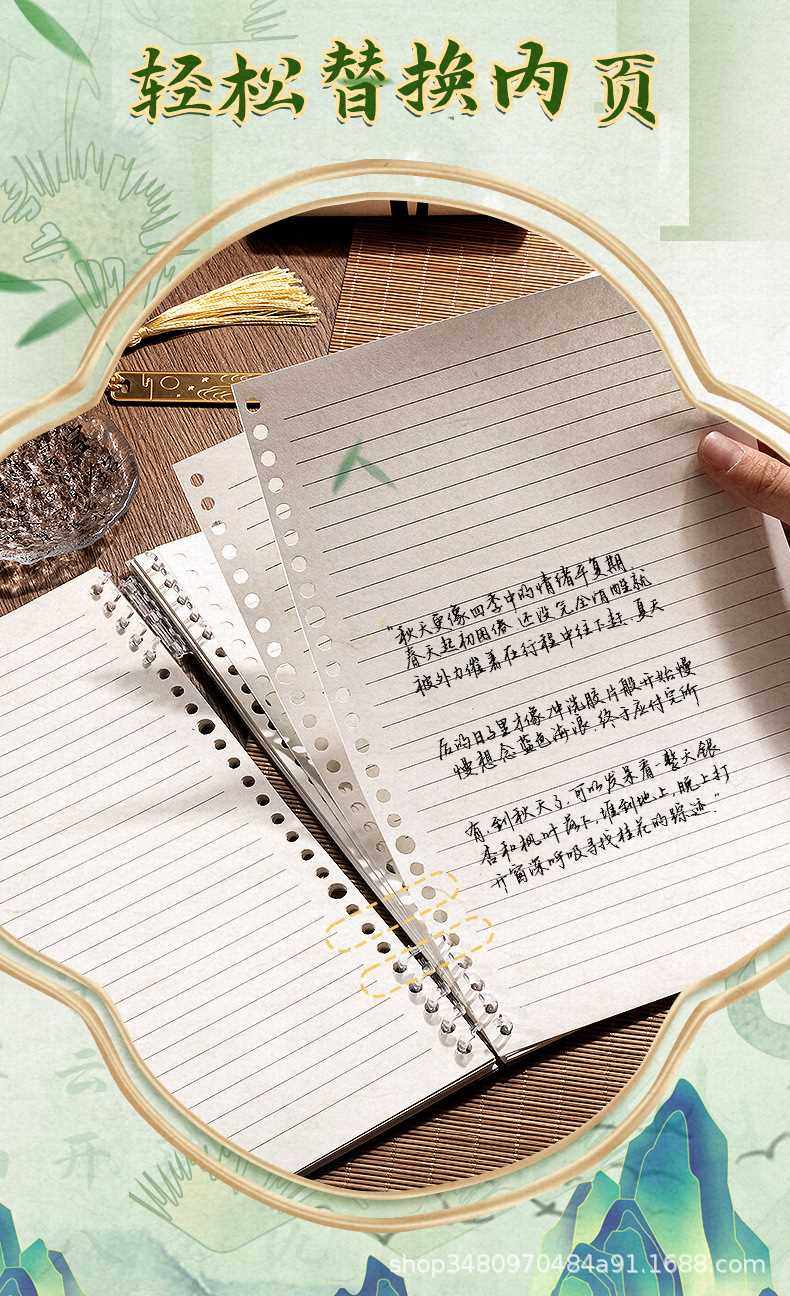 轻松替换内页
"秋天更像四季中的情绪平复期.
春天起初困倦 还没完全清醒就
被外力催着在行程中往下赶.夏天
后的日子里才像冲洗胶片般开始慢
慢想念蓝色海浪.终于应付完所
有.到秋天了,可以发呆看整天银
杏和枫叶落下,堆到地上,晚上打
开窗深呼吸寻找桂花的踪迹."
云
开
shop3480970484a91.1688.com